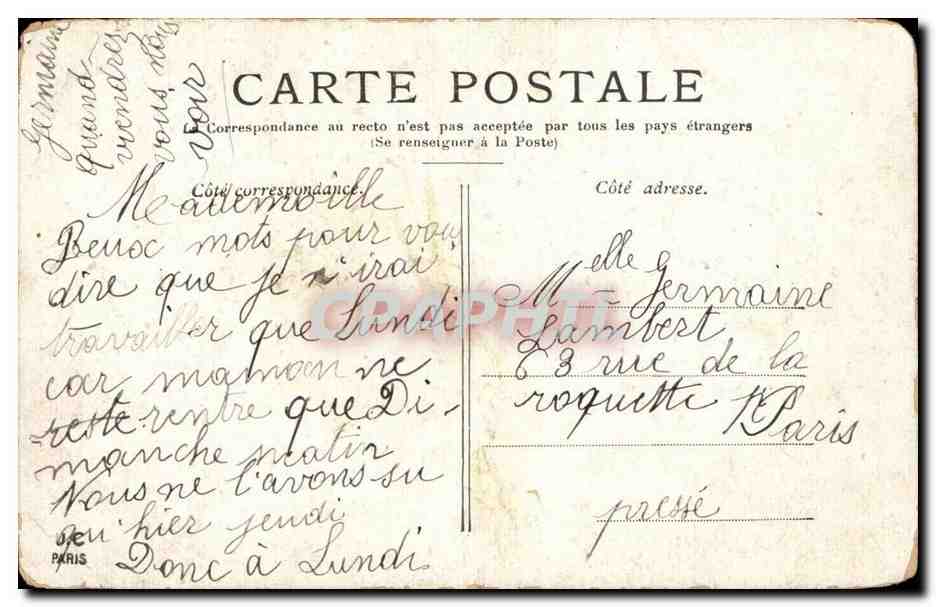 Germaine
quand
viendrez
vous n
voir
CARTE POSTALE
La Correspondance au recto n'est pas acceptée par tous les pays étrangers
(Se renseigner à la Poste)
Côté correspondance.
Mademoille
Deuoc mots pour vou
dire que je n'irai
travailler que Lundi
car maman ne
reste rentre que Di-
manche matin
Nous ne l'avons su
qu'hier jeudi
Donc à Lundi
PARIS
Côté adresse.
Melle Germaine
Lambert
63 rue de la
roquette
Paris
pressé
CPAPHIL